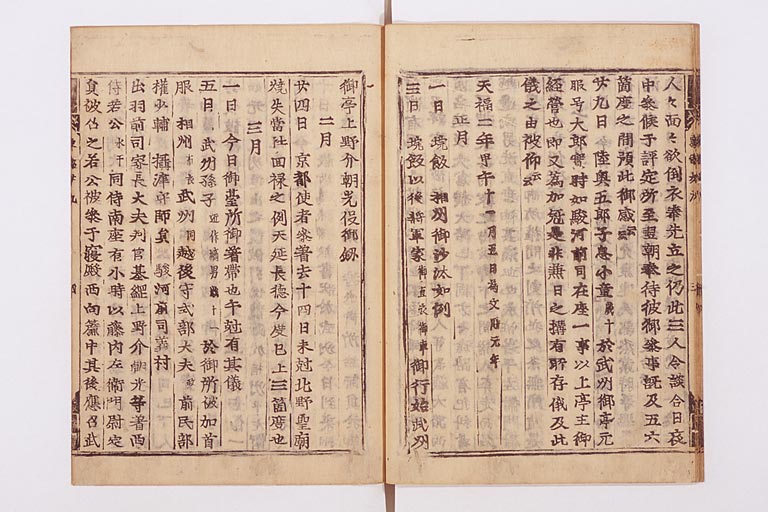 人々面々欲倒衣奉先立之仍此三人令談合日哀
中参候于評定所至翌朝奉待被御参事既及五六
箇度之間預此御感云云
廿九日 今日陸奥五郎子息小童歳十於武州御亭元
服号太郎實時如駿河前司在座一事以上亭主御
経営也即又為加冠是非兼日之構有所存儀及此
儀之由被仰云云
天福二年甲午十一月五日為文暦元年
正月
一日 垸飯 相州御沙汰如例
三日 垸飯以後将軍家 御行始武州
御亭上野介朝光役御劔
二月
廿四日 京都使者参著去十四日未剋北野聖廟
焼失當社回禄之例天延長徳今度已上三箇度也
三月
一日 今日御臺所御著帯也午剋有其儀
五日 武州孫子 歳十一於御所被加首
服 相州布衣武州同越後守式部大夫 前民部
権少輔 攝津守師員 駿河前司義村
出羽前司家長大夫判官基綱上野介朝光等著西
侍若公水干同侍南座有小時以藤内左衛門尉定
員被召之若公被参于寝殿西向簾中其後應召武